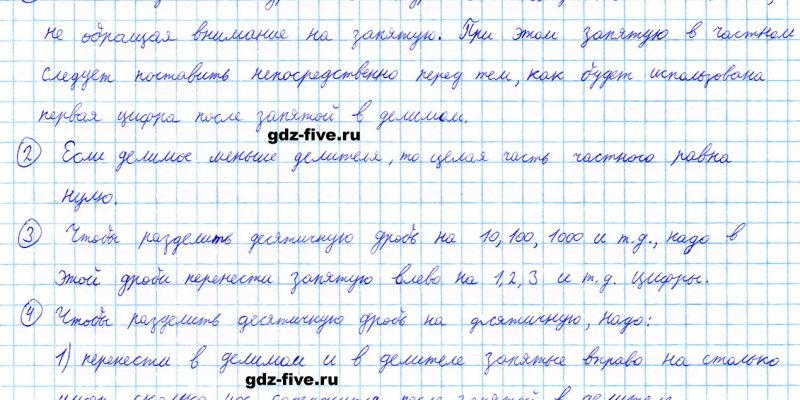 не обращая внимание на запятую. При этом запятую в частном
следует поставить непосредственно перед тем, как будет использована
первая цифра после запятой в делимом.
gdz-five.ru
2 Если делимое меньше делителя, то целая часть частного равна
нулю.
3 Чтобы разделить десятичную дробь на 10, 100, 1000 и т.д., надо в
этой дроби перенести запятую влево на 1, 2, 3 и т.д. цифры.
4 Чтобы разделить десятичную дробь на десятичную, надо:
1) перенести в делимом и в делителе запятые вправо на столько
gdz-five.ru
цифр, сколько их содержится после запятой в делителе